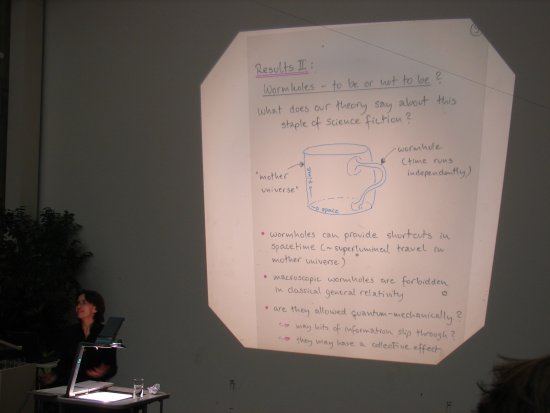 Results II:
Wormholes - to be or not to be?
What does our theory say about this
staple of science fiction?
wormhole
(time runs
independently)
"mother
universe"
time
→ space
• wormholes can provide shortcuts in
spacetime (~ superluminal travel in
mother universe)
• macroscopic wormholes are forbidden
in classical general relativity
• are they allowed quantum-mechanically?
→ may bits of information slip through?
→ they may have a collective effect